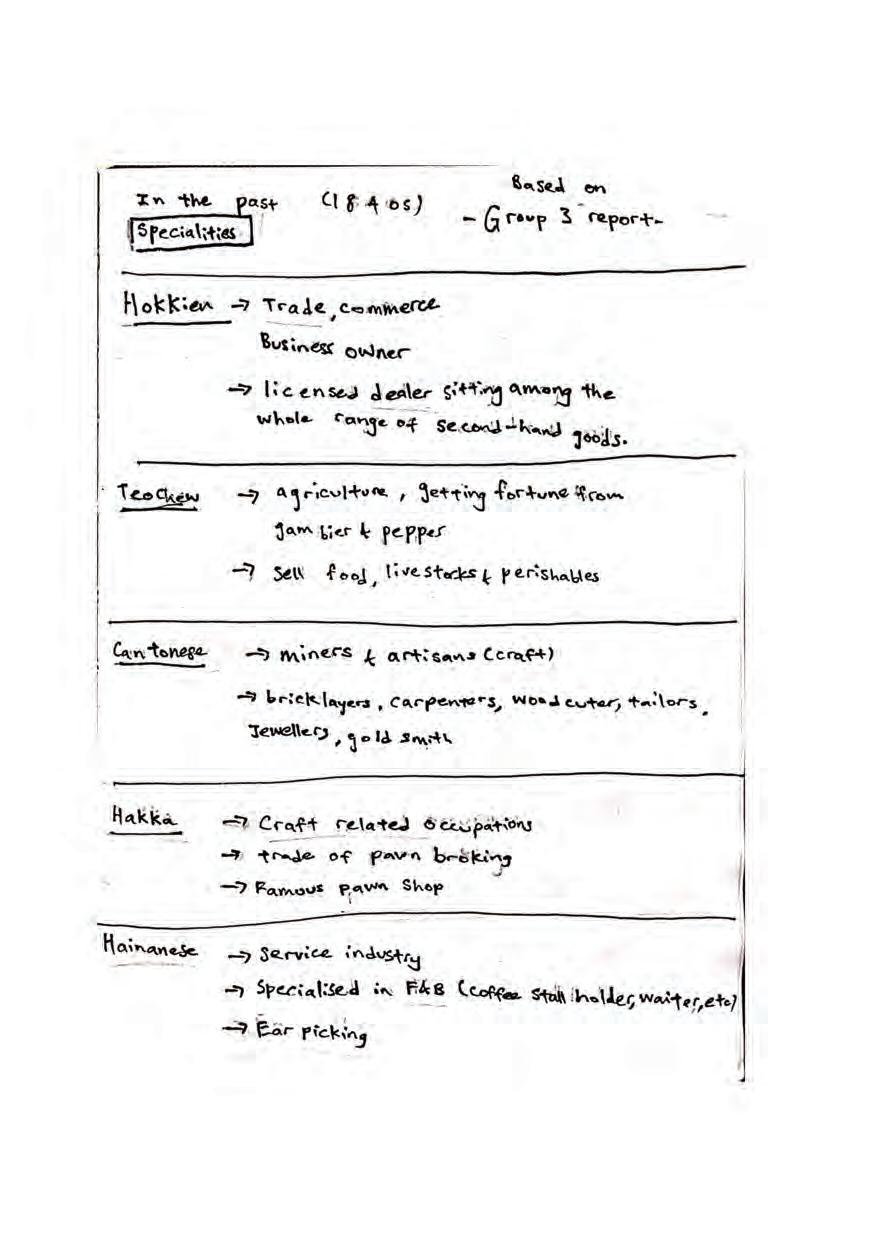 In the past (1840s)
Based on
- Group 3 report-
Specialities
Hokkien → Trade, commerce
Business owner
→ licensed dealer sitting among the
whole range of second-hand goods.
Teochew → agriculture, getting fortune from
gambier & pepper
→ Sell food, livestocks & perishables
Cantonese → miners & artisans (craft)
→ bricklayers, carpenters, wood cuter, tailors.
Jewellers, gold smith
Hakka → Craft related occupations
→ trade of pawn broking
→ Famous pawn shop
Hainanese → Service industry
→ Specialised in F&B (coffee stall holder, waiter, etc)
→ Ear picking